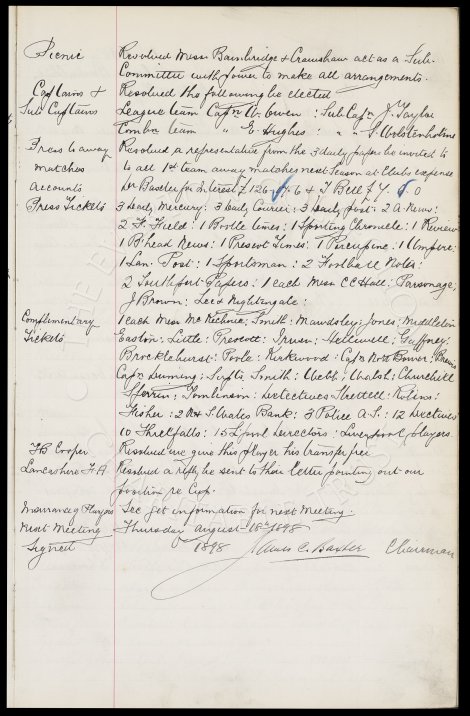 Picnic Resolved Messrs Bainbridge & Crawshaw act as a Sub-
Committee with power to make all arrangements.
Captains & Resolved the following be elected
Sub Captains League team Captn W. Owen : Sub Captn J. Taylor
Combn team " G Hughes : " " Wolstenholme
Press & away Resolved a representative from the 3 daily papers be invited to
matches to all 1st team away matches next Season at Clubs expense
accounts Dr Baxter for Interest £ 126 6 & T Bell £ 0
Press Tickets 3 Dearly Mercury : 3 Daily Courier : 3 Dearly Post : 2 A. News :
2 F. Field : 1 Bootle Times : 1 Sporting Chronicle : 1 Review
1 B'head News : 1 Prescot Times : 1 Porcupine : 1 Umpire :
1 Lan. Post : 1 Sportsman : 2 Football Notes :
2 Southport Papers : 1 each Messrs C E Hall : Parsonage,
J Brown : Lee & Nightingale :
Complimentary 1 each Messrs : Smith : Mawdsley : Jones : Middleton
Tickets Easton : Little : Prescott : : Helliwell : Gaffney :
Brocklehurst : Poole : Kirkwood : Captn Nott Bower :
Captn : Supts Smith : Webb : Walsh : Churchill
Sperrin : Tomlinson : Detectives : Robins :
Fisher : 2 N & S. Wales Bank : 3 Police A. S. : 12 Directors
10 Threlfalls : 15 L'pool Directors : Liverpool players.
F B Cooper Resolved we give this player his transfer free
Lancashire F. A Resolved a reply be sent to their letter pointing out our
position re Cup.
Players Sec get information for next Meeting.
Next Meeting Thursday August 18th 1898
Signed 1898 James C. Baxter Chairman